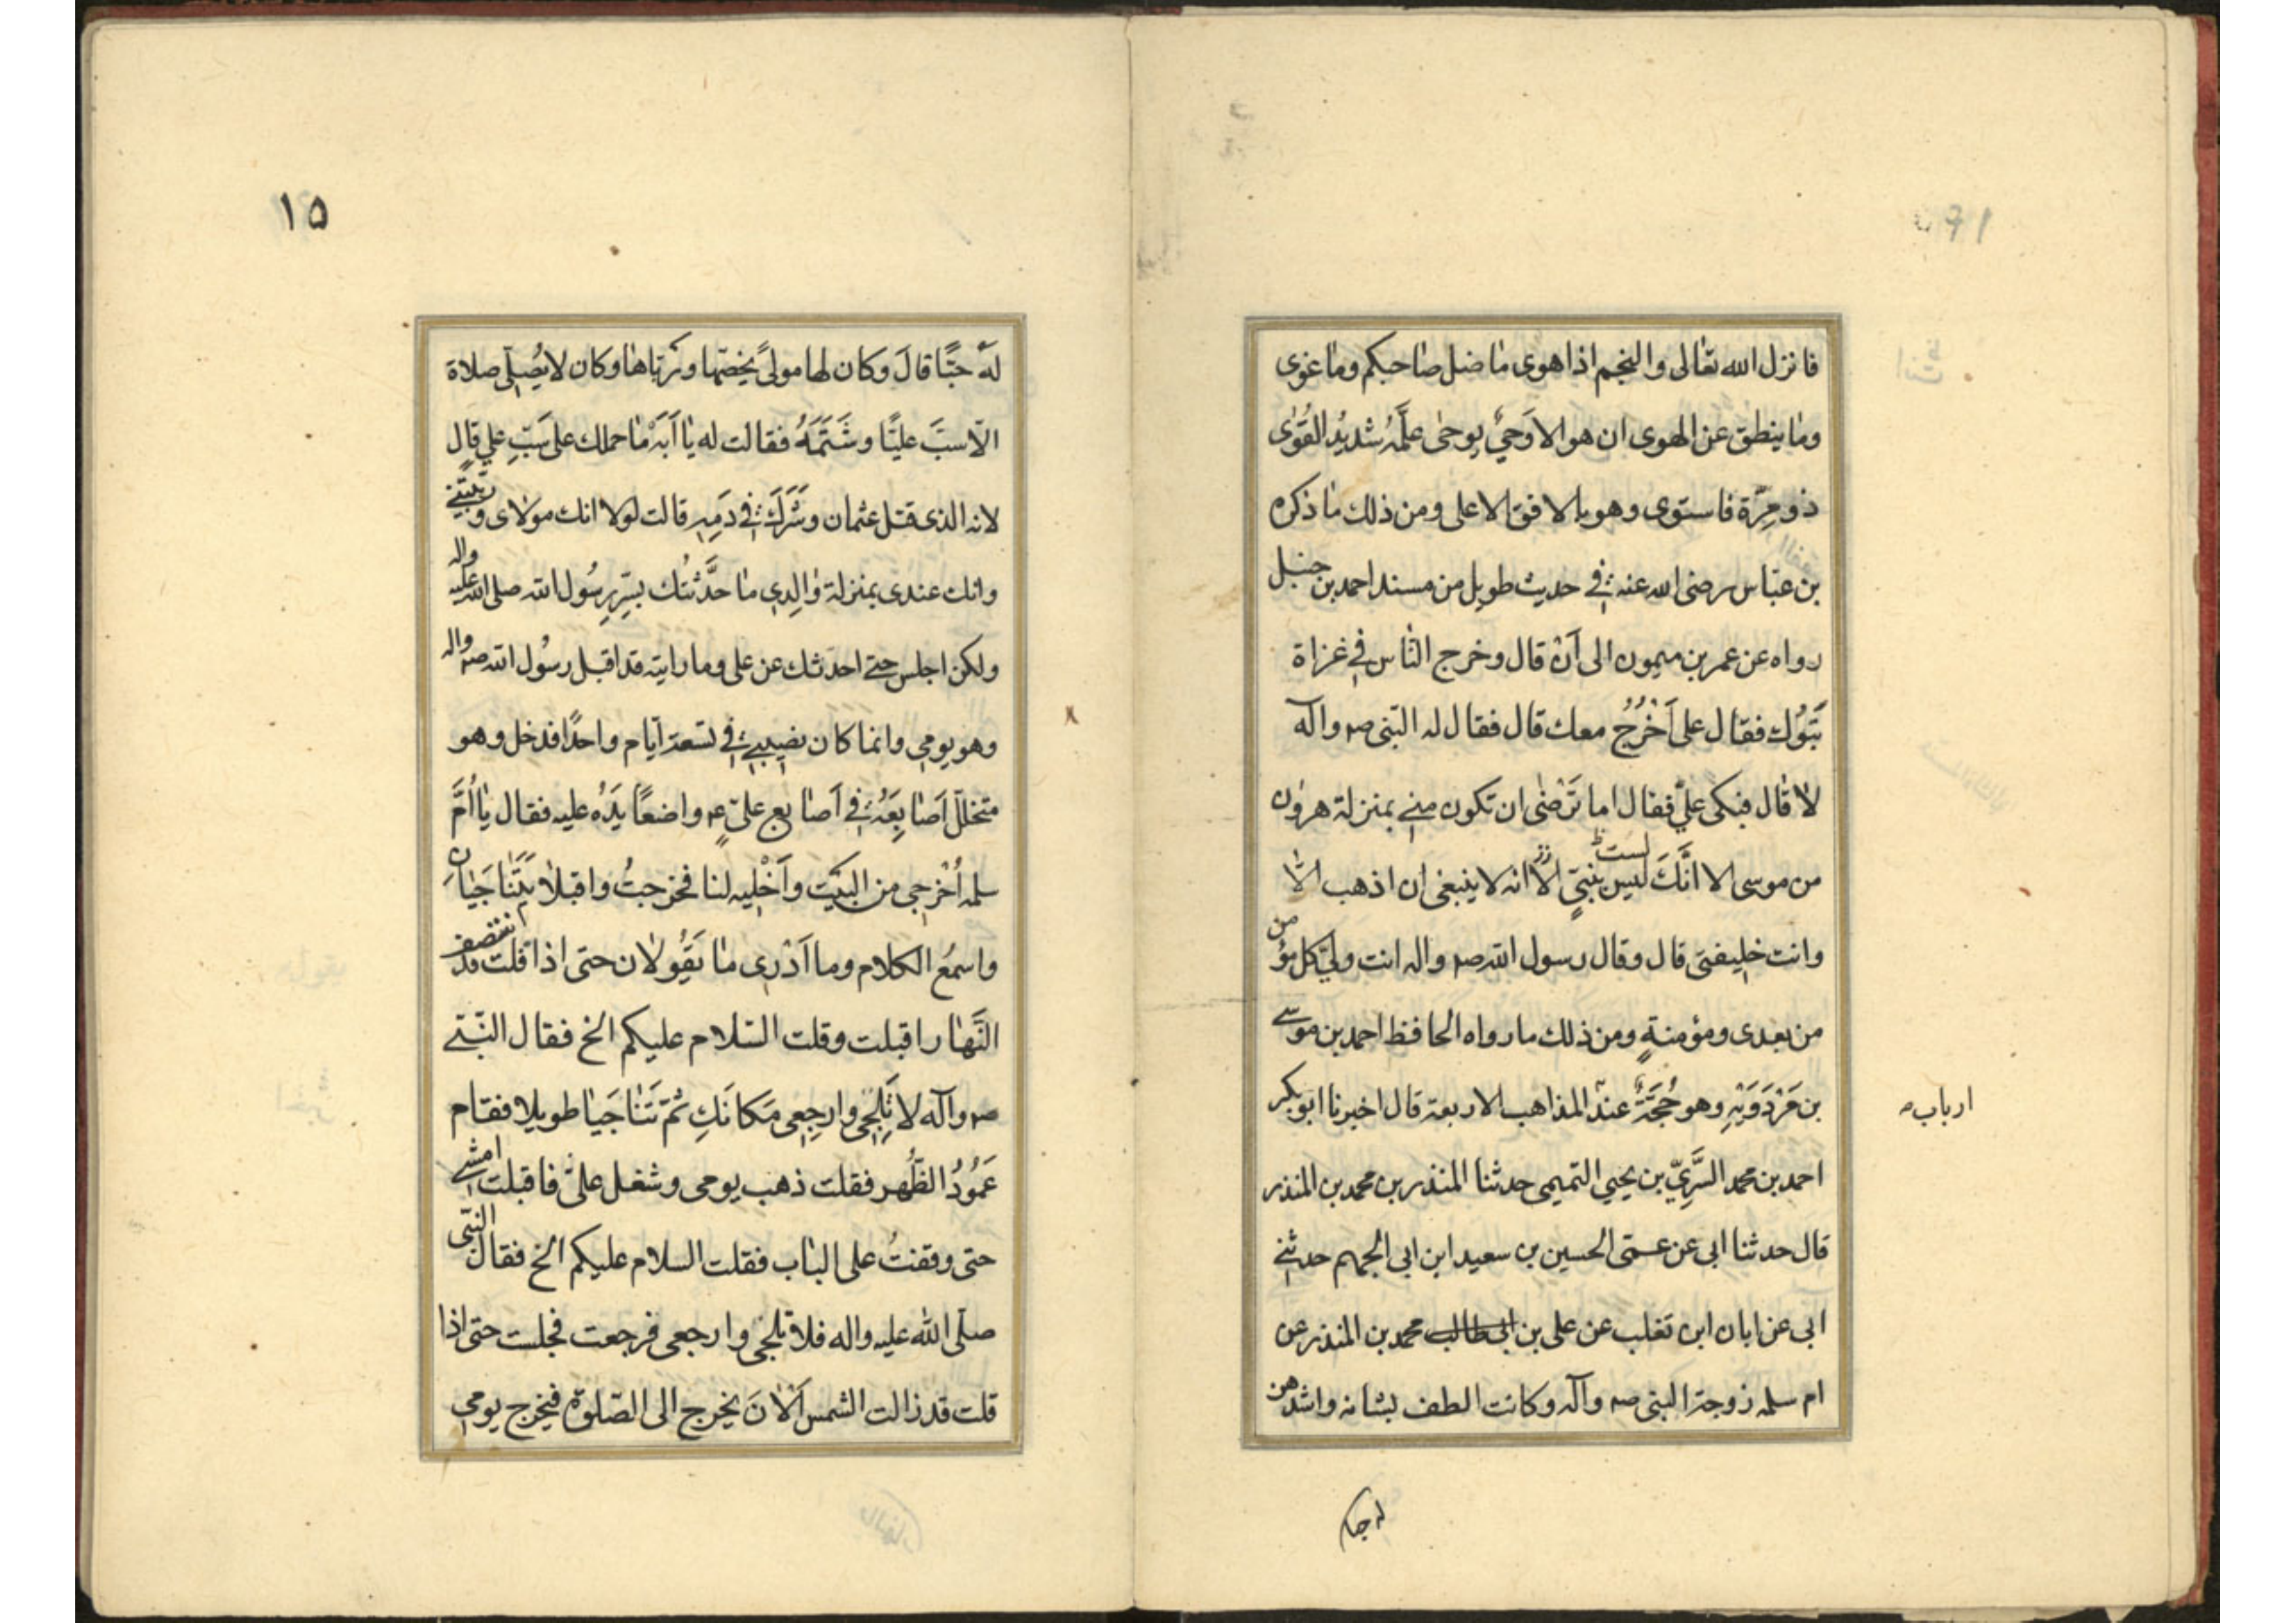 فانزل الله تعالى والنجم اذا هوى ما ضل صاحبكم وما غوى
وما ينطق عن الهوى ان هو الا وَحيٌ يوحى علَّمهُ شديدُ القُوٰى
ذو مِرَّة فاستوى وهو بالافق الاعلى ومن ذلك ما ذكره
بن عبّاس رضى الله عنه فى حديث طويل من مسند احمد بن حنبل
رواه عن عمر بن ميمون الى اَنْ قال وخرج النّاس فى غزاة
تَبَوُك فقال على اَخْرُجُ معك قال فقال له النّبى صم وآله
لا قال فبكى علىٌّ فقال اما تَرْضٰى ان تكون منى بمنزلة هرون
من موسى الا انَّكَ ليس لست بنبىٍّ الا انه لا ينبغى ان اذهب الّا
وانت خليفتى قال وقال رسول الله صم واله انت ولىّ كل مؤمن
من بعدى ومؤمنةٍ ومن ذلك ما رواه الحافظ احمد بن موسى
بن مَرْدَوَيْهِ وهو حُجَّةٌ عند المذاهب الاربعة قال اخبرنا ابو بكر
ارباب
احمد بن محمد السَّرِىّ بن يحيى التميمى حدثنا المنذر بن محمد بن المنذر
قال حدثنا ابى عن عمّى الحسين بن سعيد ابن ابى الجهم حدثنى
ابى عن ابان ابن تغلب عن على بن ابى طالب محمد بن المنذر عن
ام سلمه زوجة النبى صم وآله وكانت الطف نسائه واشدهن
١٥
لَهُ حبًّا قالَ وكان لها مولىً يخصّها وربّاها وكان لا يُصلّى صلاة
الّا سبَّ عليًّا وشَتَمَهُ فقالت له يا اَبَه ما حملك على سَبِّ على قال
لانه الذى قتل عثمان وشَرَكَ فى دَمِهِ قالت لولا انك مولاى وربّيتنى
وانك عندى بمنزلة والِدى ما حدَّثتُك بسِرِّ رسُول الله صلى الله عليه واله
ولكن اجلس حتى احدثك عن على وما رايته قد اقبل رسُول الله صم واله
وهو يومى وانما كان نصيبى فى تسعة ايّام واحدًا فدخل وهو
متخلل اَصابِعَهُ فى اَصابع علىّ ع واضعًا يَدَهُ عليه فقال يا اُمَّ
سلمه اُخْرجى من البَيْت واَخْليه لنا فخرجتُ واقبلا يَتَناجَيٰانِ
واسمعُ الكلام وما اَدْرى ما يَقُولان حتى اذا قلت قد انتصف
النَّهار اقبلت وقلت السّلام عليكم الخ فقال النّبى
صم وآله لا تَلِجى وارجِعى مَكانَكِ ثمّ تَناجَيا طويلا فقام
عَمُودُ الظّهر فقلت ذهب يومى وشغل علىّ فاقبلت امشى
حتى وقفتُ على الباب فقلت السلام عليكم الخ فقال النّبى
صلّى الله عليه واله فلا تلجى وارجعى فرجعت فجلست حتى اذا
قلت قد زالت الشمس اَلْانَ يخرج الى الصّلوة فيخرج يومى